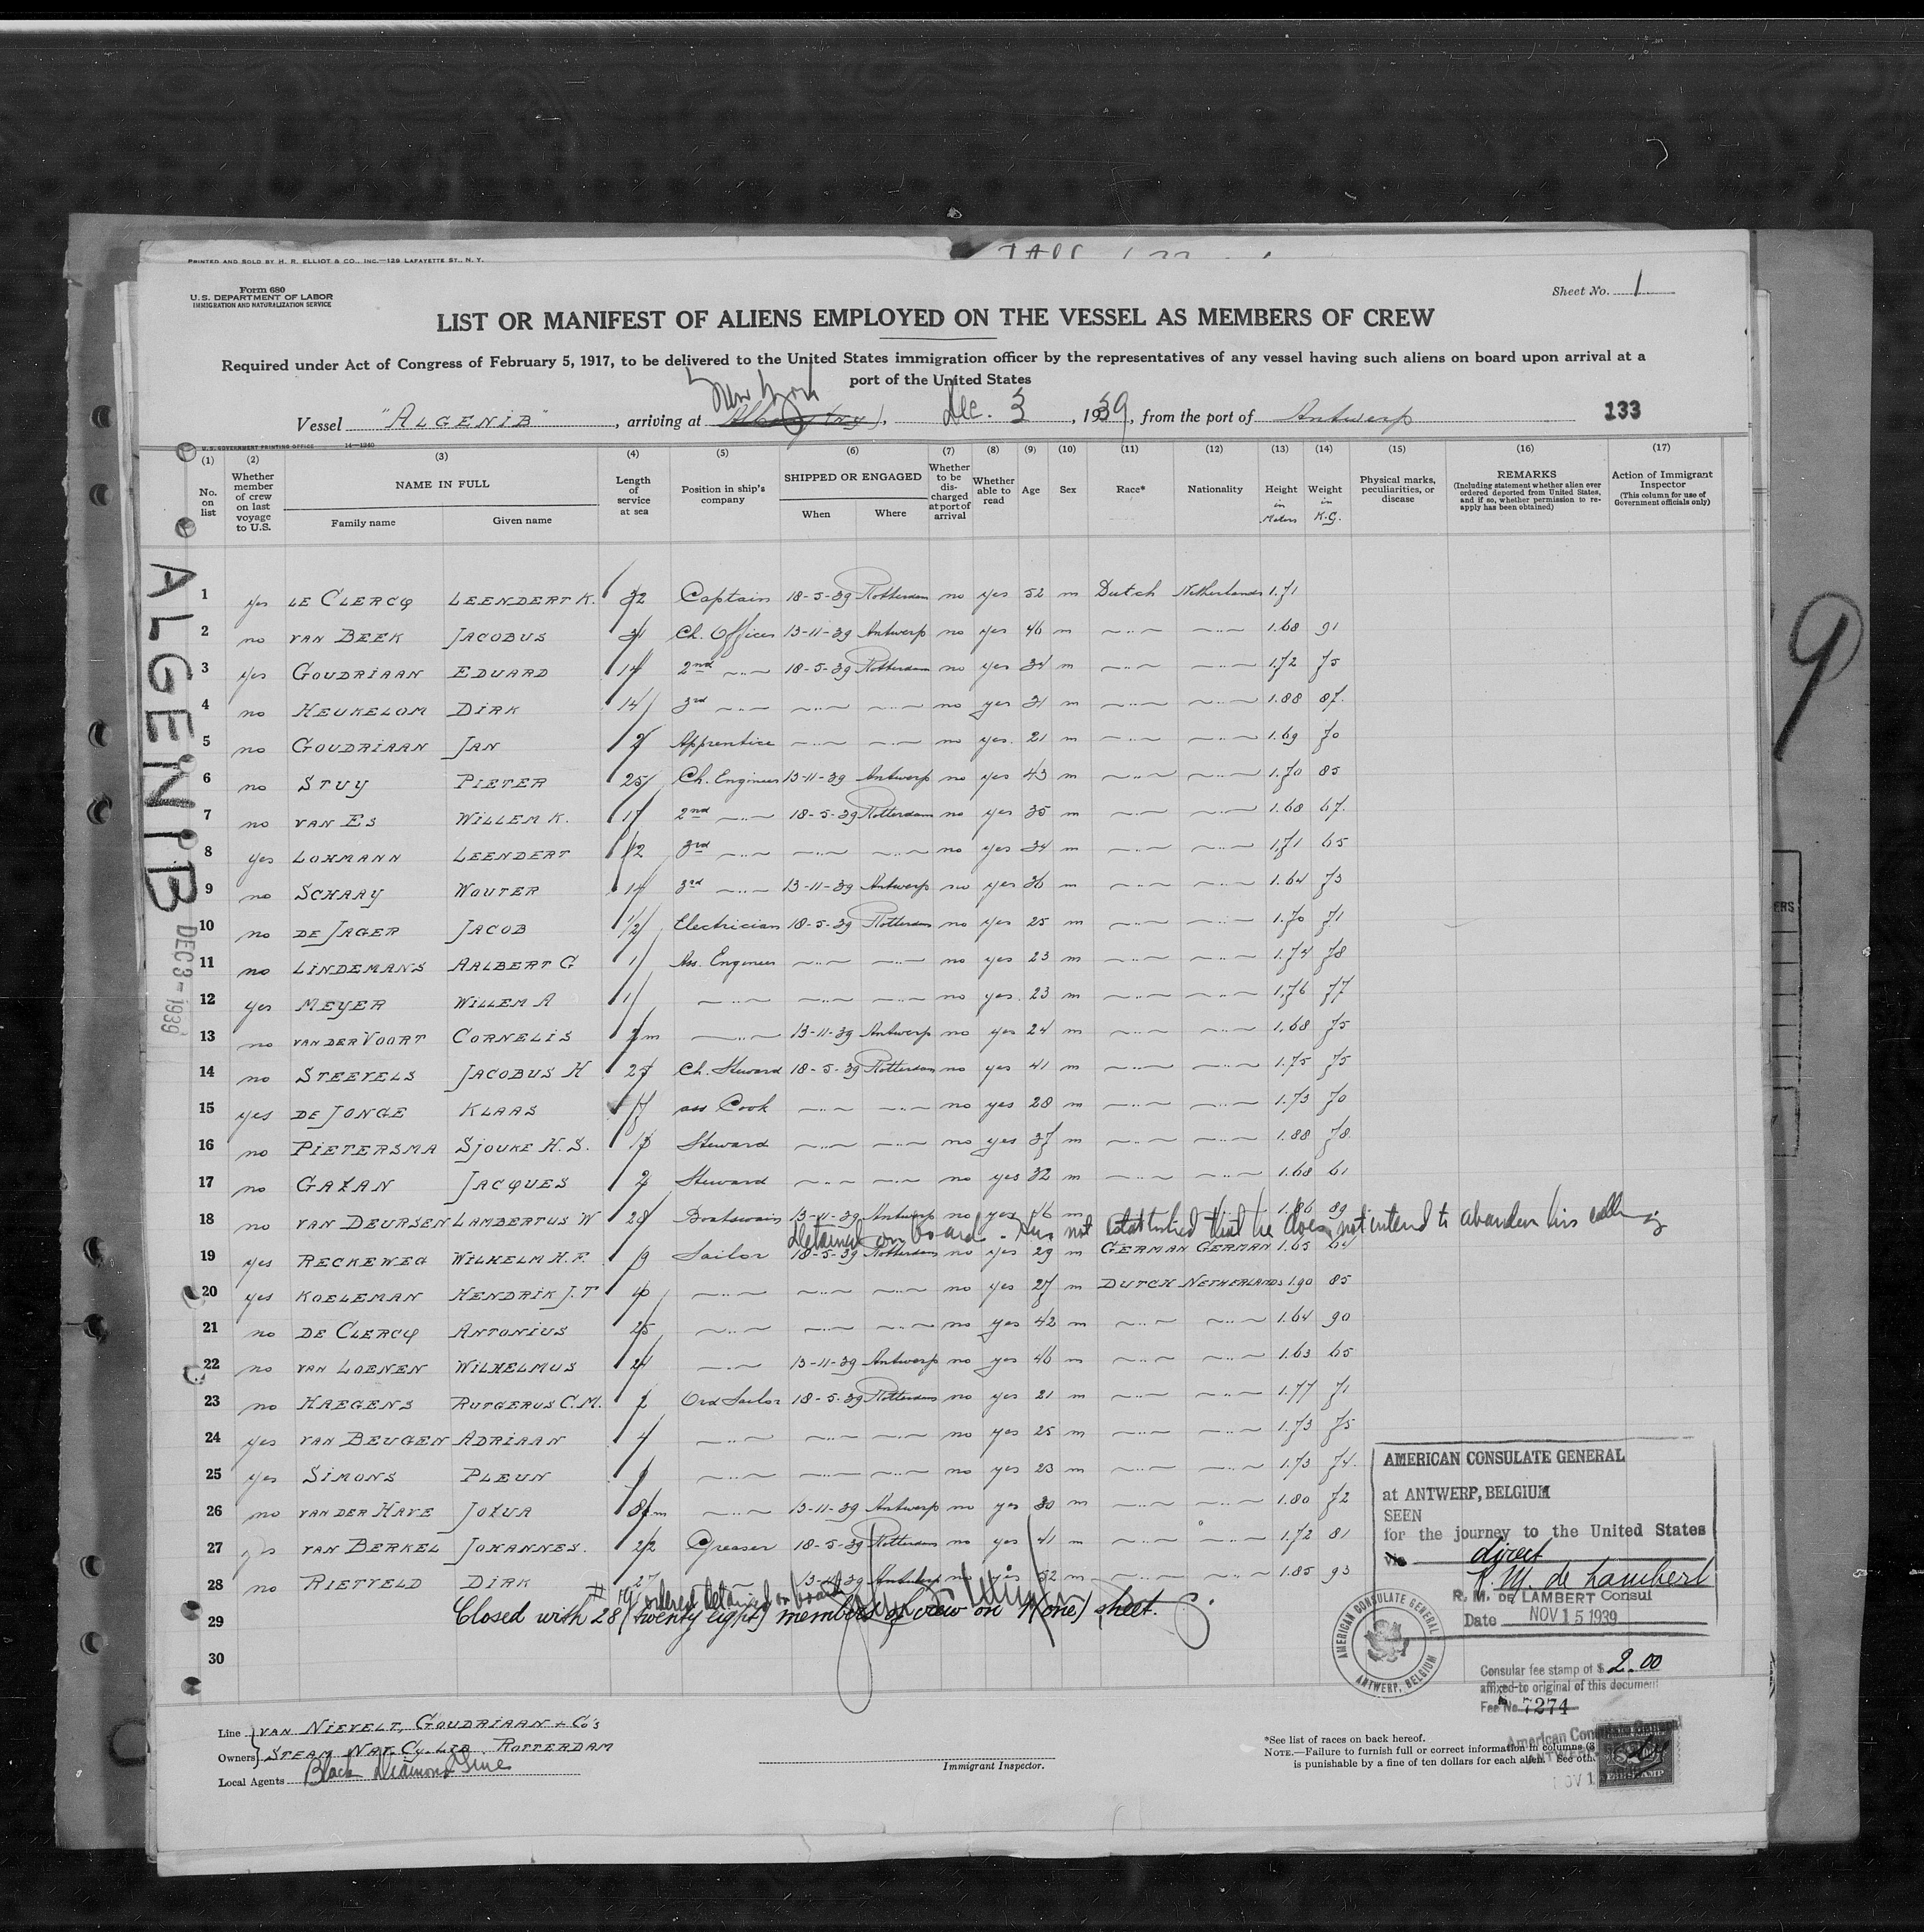 PRINTED AND SOLD BY H. R. ELLIOT & CO., INC.—129 LAFAYETTE ST., N. Y.
Form 680
U.S. DEPARTMENT OF LABOR
IMMIGRATION AND NATURALIZATION SERVICE
Sheet No. 1
LIST OR MANIFEST OF ALIENS EMPLOYED ON THE VESSEL AS MEMBERS OF CREW
Required under Act of Congress of February 5, 1917, to be delivered to the United States immigration officer by the representatives of any vessel having such aliens on board upon arrival at a
port of the United States
New York
Vessel "ALGENIB", arriving at Albany (NY), Dec. 3, 1939, from the port of Antwerp 133
U.S. GOVERNMENT PRINTING OFFICE 14—1240
(1) (2) (3) (4) (5) (6) (7) (8) (9) (10) (11) (12) (13) (14) (15) (16) (17)
No. on list
Whether member of crew on last voyage to U.S.
NAME IN FULL
Family name Given name
Length of service at sea
Position in ship's company
SHIPPED OR ENGAGED
When Where
Whether to be discharged at port of arrival
Whether able to read
Age
Sex
Race*
Nationality
Height in Meters
Weight in K.G.
Physical marks, peculiarities, or disease
REMARKS
(Including statement whether alien ever ordered deported from United States, and if so, whether permission to reapply has been obtained)
Action of Immigrant Inspector
(This column for use of Government officials only)
ALGENIB
DEC 3 - 1939
1 yes LE CLERCQ LEENDERT K. 32 Captain 18-5-39 Rotterdam no yes 52 m Dutch Netherlands 1.71
2 no VAN BEEK JACOBUS Ch. Officer 13-11-39 Antwerp no yes 46 m —..— —..— 1.68 91
3 yes GOUDRIAAN EDUARD 14 2nd —..— 18-5-39 Rotterdam no yes 34 m —..— —..— 1.72 75
4 no HEUKELOM DIRK 14 3rd —..— —..— —..— no yes 31 m —..— —..— 1.88 87.
5 no GOUDRIAAN JAN 2 Apprentice —..— —..— no yes. 21 m —..— —..— 1.69 70
6 no STUY PIETER 25 Ch. Engineer 13-11-39 Antwerp no yes 43 m —..— —..— 1.70 85
7 no VAN ES WILLEM K. 17 2nd —..— 18-5-39 Rotterdam no yes 35 m —..— —..— 1.68 67.
8 yes LOHMANN LEENDERT 12 3rd —..— —..— —..— no yes 34 m —..— —..— 1.71 65
9 no SCHAAY WOUTER 3rd —..— 13-11-39 Antwerp no yes 36 m —..— —..— 1.64 73
10 no DE JAGER JACOB 1/2 Electrician 18-5-39 Rotterdam no yes 25 m —..— —..— 1.70 71
11 no LINDEMANS AALBERT G 1 Ass. Engineer —..— —..— no yes 23 m —..— —..— 1.74 78
12 yes MEYER WILLEM A 1 —..— —..— —..— no yes. 23 m —..— —..— 1.76 77
13 no VAN DER VOORT CORNELIS m —..— 13-11-39 Antwerp no yes 24 m —..— —..— 1.68 75
14 no STEEVELS JACOBUS H Ch. Steward 18-5-39 Rotterdam no yes 41 m —..— —..— 1.75 75
15 yes DE JONGE KLAAS ass Cook —..— —..— no yes 28 m —..— —..— 1.73 70
16 no PIETERSMA SJOUKE H. S. Steward —..— —..— no yes 37 m —..— —..— 1.88 78
17 no GAZAN JACQUES 2 Steward —..— —..— no yes 32 m —..— —..— 1.68 61
18 no VAN DEURSEN LAMBERTUS W 28 Boatswain 13-11-39 Antwerp no yes 46 m —..— —..— 1.86 89
Detained on board - Has not established that he does not intend to abandon his calling
19 yes RECKEWEG WILHELM H. F. 9 Sailor 18-5-39 Rotterdam no yes 29 m GERMAN GERMAN 1.65 64
20 yes KOELEMAN HENDRIK J. T —..— —..— —..— no yes 27 m DUTCH NETHERLANDS 1.90 85
21 no DE CLERCQ ANTONIUS 25 —..— —..— —..— no yes 42 m —..— —..— 1.64 90
22 no VAN LOENEN WILHELMUS —..— 13-11-39 Antwerp no yes 46 m —..— —..— 1.63 65
23 no HAEGENS RUTGERUS C. M. 2 Ord Sailor 18-5-39 Rotterdam no yes 21 m —..— —..— 1.77 71
24 yes VAN BEUGEN ADRIAAN 4 —..— —..— —..— no yes 25 m —..— —..— 1.73 75
25 yes SIMONS PLEUN —..— —..— —..— no yes 23 m —..— —..— 1.73 74.
26 no VAN DER HAVE JOZUA m —..— 13-11-39 Antwerp no yes 30 m —..— —..— 1.80 72
27 yes VAN BERKEL JOHANNES. 22 Greaser 18-5-39 Rotterdam no yes 41 m —..— —..— 1.72 81
28 no RIETVELD DIRK 27 —..— 13-11-39 Antwerp no yes 52 m —..— —..— 1.85 93
# 19 ordered detained on board
29 Closed with 28 (twenty eight) members of crew on 1 (one) sheet.
30
AMERICAN CONSULATE GENERAL
at ANTWERP, BELGIUM
SEEN
for the journey to the United States
via direct
R. M. de Lambert
R. M. DE LAMBERT Consul
Date NOV 15 1939
AMERICAN CONSULATE GENERAL
ANTWERP, BELGIUM
Consular fee stamp of $ 2.00
affixed to original of this document
Fee No. 7274
Line VAN NIEVELT, GOUDRIAAN & Co's
Owners STEAM NAV. Cy. LTD. ROTTERDAM
Local Agents Black Diamond Line
Immigrant Inspector.
*See list of races on back hereof.
NOTE.—Failure to furnish full or correct information in columns
is punishable by a fine of ten dollars for each alien. See
American Consulate General
9